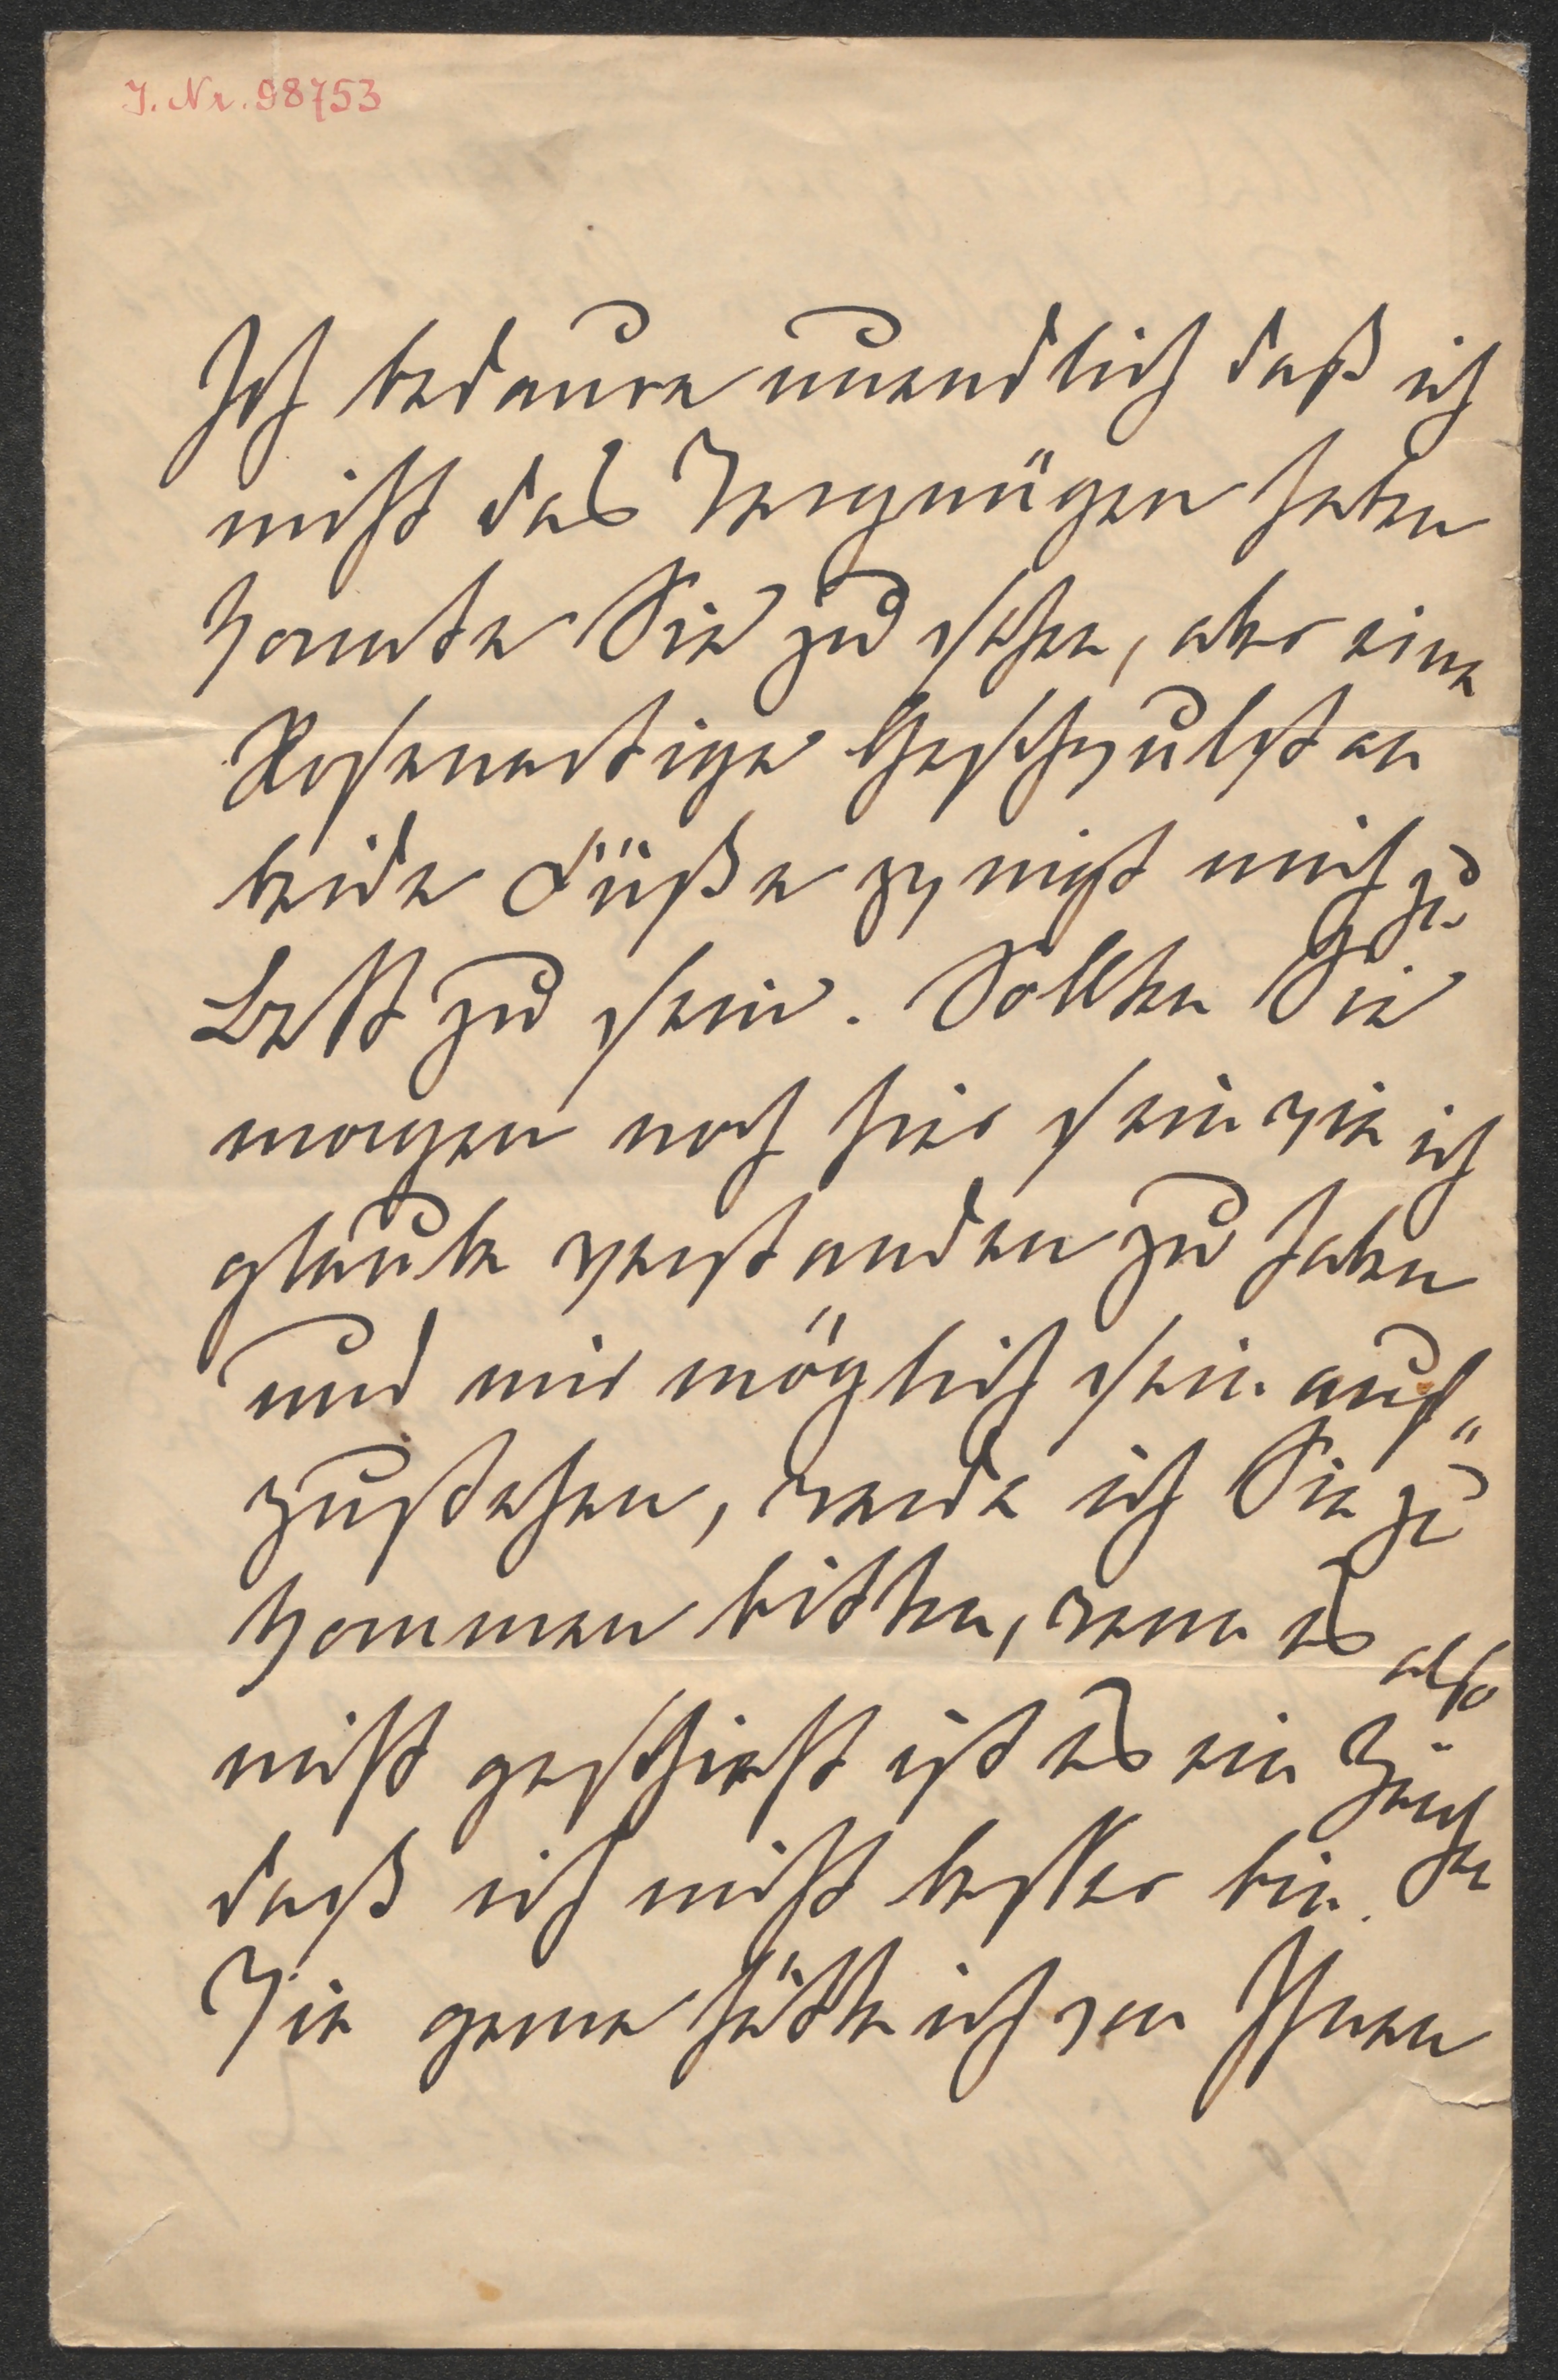 J. Nr. 98753
Ich bedaure unendlich daß ich
nicht das Vergnügen haben
konnte Sie zu sehen, aber eine
Rosenartige Geschwulst an
beide Füße zwingt mich zu
Bett zu sein. Sollten Sie
morgen noch hier sein wie ich
glaube verstanden zu haben
und mir möglich sein auf„
zustehen, werde ich Sie zu
kommen bitten, wenn es also
nicht geschieht ist es ein Zeichen
daß ich nicht besser bin.
Wie gerne hätte ich von Ihnen